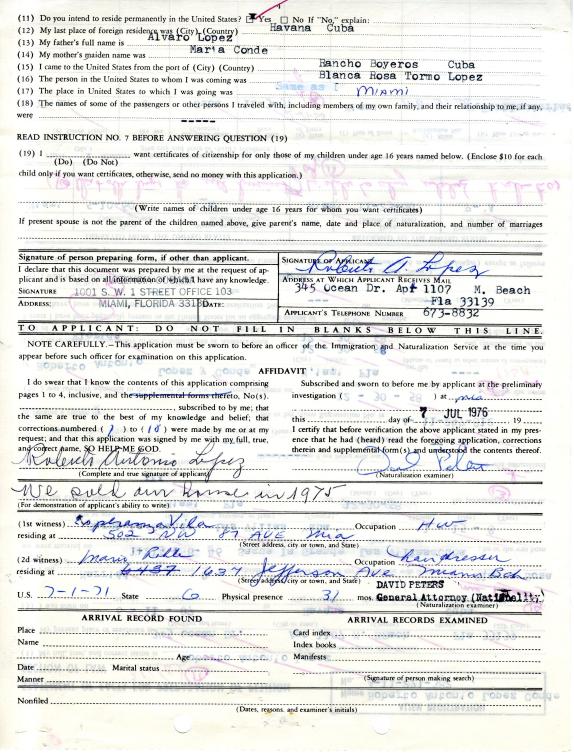 (11) Do you intend to reside permanently in the United States? Yes No If "No," explain:
(12) My last place of foreign residence was (City), (Country) Havana Cuba
(13) My father's full name is Alvaro Lopez
(14) My mother's maiden name was Maria Conde
(15) I came to the United States from the port of (City) (Country) Rancho Boyeros Cuba
(16) The person in the United States to whom I was coming was Blanca Rosa Tormo Lopez
(17) The place in the United States to which I was going was MIAMI
(18) The names of some of the passengers or other persons I traveled with, including members of my own family, and their relationship to me, if any,
were -----
READ INSTRUCTION NO. 7 BEFORE ANSWERING QUESTION (19)
(19) I want certificates of citizenship for only those of my children under age 16 years named below. (Enclose $10 for each
(Do) (Do Not)
child only if you want certificates, otherwise, send no money with this application.)
(Write names of children under age 16 years for whom you want certificates)
If present spouse is not the parent of the children named above, give parent's name, date and place of naturalization, and number of marriages
Signature of person preparing form, if other than applicant.
I declare that this document was prepared by me at the request of ap-
plicant and is based on all information of which I have any knowledge.
SIGNATURE 1001 S. W. 1 STREET OFFICE 103
ADDRESS: MIAMI, FLORIDA DATE:
SIGNATURE OF APPLICANT
Roberto A. Lopez
ADDRESS AT WHICH APPLICANT RECEIVES MAIL
345 Ocean Dr. Apt 1107 M. Beach
--- Fla 33139
APPLICANT'S TELEPHONE NUMBER 673-8832
TO APPLICANT: DO NOT FILL IN BLANKS BELOW THIS LINE.
NOTE CAREFULLY.—This application must be sworn to before an officer of the Immigration and Naturalization Service at the time you
appear before such officer for examination on this application.
AFFIDAVIT
I do swear that I know the contents of this application comprising
pages 1 to 4, inclusive, and the supplemental forms thereto, No(s).
subscribed to by me; that
the same are true to the best of my knowledge and belief; that
corrections numbered ( ) to ( ) were made by me or at my
request; and that this application was signed by me with my full, true,
and correct name, SO HELP ME GOD.
Roberto Antonio Lopez
(Complete and true signature of applicant)
Subscribed and sworn to before me by applicant at the preliminary
investigation ( ) at mia
this day of 7 JUL 1976 19
I certify that before verification the above applicant stated in my pres-
ence that he had (heard) read the foregoing application, corrections
therein and supplemental form(s) and understood the contents thereof.
(Naturalization examiner)
We sold our home in 1975
(For demonstration of applicant's ability to write)
(1st witness) Occupation HW
residing at 502 NW 87 AVE Mia
(Street address, city or town, and State)
(2d witness) Occupation hairdresser
residing at 1637 Jefferson Ave Miami Bch
(Street address, city or town, and State)
DAVID PETERS
U.S. 7-1-71 State 6 Physical presence 31 mos. General Attorney (Nationality)
(Naturalization examiner)
ARRIVAL RECORD FOUND
Place
Name
Age
Date Marital status
Manner
ARRIVAL RECORDS EXAMINED
Card index
Index books
Manifests
(Signature of person making search)
Nonfiled
(Dates, reasons, and examiner's initials)